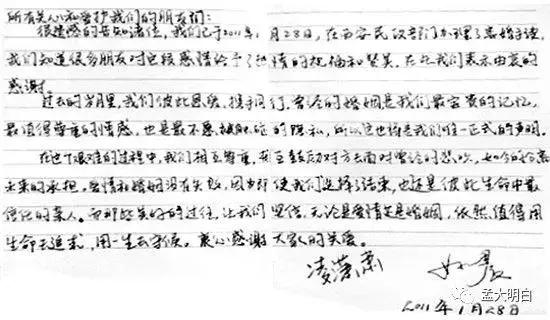 所有关心和爱护我们的朋友们:
很遗憾的告知诸位,我们已于2011年1月28日,在西安民政部门办理了离婚手续,
我们知道很多朋友对这段感情给予了热情的祝福和赞美,在此我们表示由衷的
感谢。
过去的岁月里,我们彼此恩爱,携手同行,曾经的婚姻是我们最宝贵的记忆,
最值得尊重的情感,也是最不愿被触碰的隐私,所以这也将是我们唯一正式的声明。
在这个艰难的过程中,我们相互尊重,相互鼓励对方去面对曾经的悲欢,如今的分离
未来的承担,爱情和婚姻没有失败,因为即使我们选择了结束,也还是彼此生命中最
信任的亲人。而那些美好的过往,让我们坚信,无论是爱情还是婚姻,依然值得用
生命去追求,用一生去守候。衷心感谢大家的关爱。
凌潇肃 姚晨
2011年1月28日
孟大明白